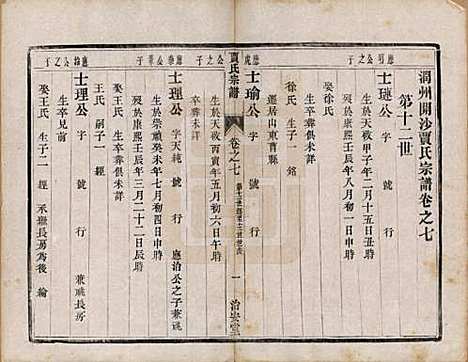 潤州開沙賈氏宗譜卷之七
第十二世
應明公之子
士璉公 字 號 行
生於天啟甲子年二月十五日丑時
歿於康熙壬辰年八月初一日申時
娶徐氏
徐氏 生子一 銘
生卒葬俱未詳
遷居山東曹縣
應虎公之子
士瑜公 字 號 行
生於天啟丙寅年五月初六日午時
卒葬未詳
賈氏宗譜
卷之七
一 治安堂
應泰公嗣子
士理公 字天純 號 行 應治公之子兼祧
生於崇禎癸未年七月初四日時
歿於康熙壬辰年三月二十二日辰時
娶王氏 生卒葬俱未詳
王氏 嗣子一 經
應治公之子
士理公 字 號 行 兼祧長房
生卒見前
娶王氏 生子二 經 承繼長房為後 綸